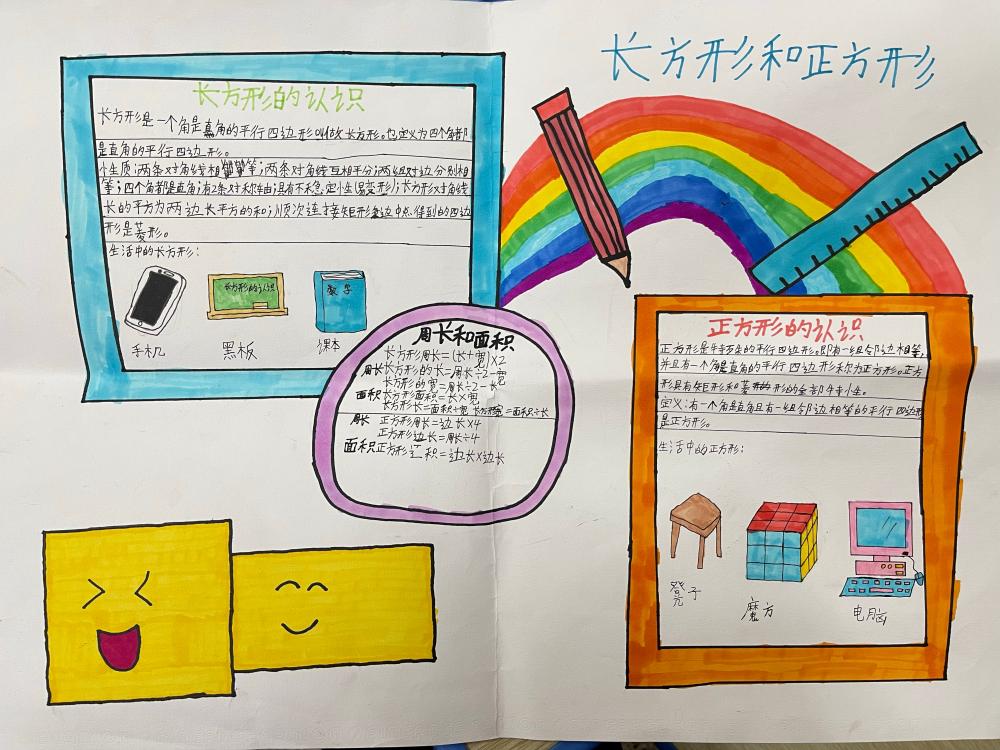 长方形和正方形
长方形的认识
长方形是一个角是直角的平行四边形叫做长方形。也定义为四个角都
是直角的平行四边形。
性质:两条对角线相等;两条对角线互相平分;两组对边分别相
等;四个角都是直角;有2条对称轴;具有不稳定性(易变形);长方形对角线
长的平方为两边长平方的和;顺次连接矩形各边中点得到的四边
形是菱形。
生活中的长方形:
长方形的认识
数学
手机
黑板
课本
周长和面积
长方形周长=(长+宽)×2
周长 长方形的长=周长÷2-宽
长方形的宽=周长÷2-长
面积 长方形面积=长×宽
长方形长=面积÷宽 长方形宽=面积÷长
周长 正方形周长=边长×4
正方形边长=周长÷4
面积 正方形面积=边长×边长
正方形的认识
正方形是特殊的平行四边形。即有一组邻边相等,
并且有一个角是直角的平行四边形称为正方形。正方
形具有矩形和菱形的全部特性。
定义:有一个角是直角且有一组邻边相等的平行四边形
是正方形。
生活中的正方形:
凳子
魔方
电脑